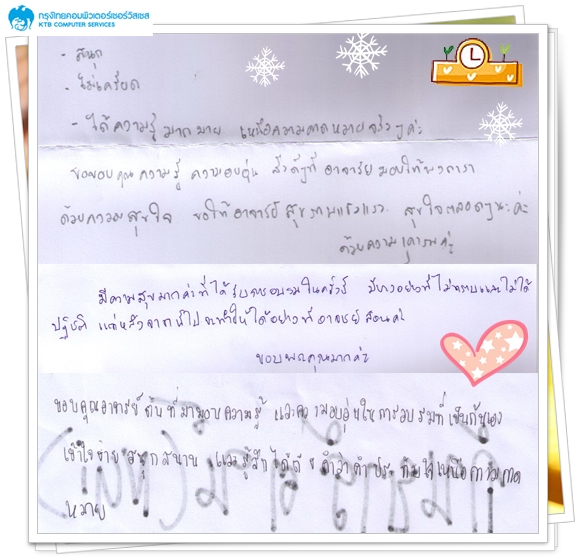 กรุงไทยคอมพิวเตอร์เซอร์วิสเซส
KTB COMPUTER SERVICES
- สนุก
- ไม่เครียด
- ได้ความรู้มากมาย เหนือความคาดหมายจริงๆค่ะ
ขอขอบคุณความรู้ ความอบอุ่น สิ่งดีๆที่ อาจารย์มอบให้พวกเรา
ด้วยความสุขใจ ขอให้อาจารย์สุขภาพแข็งแรง สุขใจตลอดๆนะค่ะ
ด้วยความเคารพค่ะ
มีความสุขมากค่ะที่ได้รับการอบรมในครั้งนี้ มีบางอย่างที่ไม่ทราบและไม่ได้
ปฏิบัติ แต่หลังจากนี้ไปจะทำให้ได้อย่างที่อาจารย์สอนค่ะ
ขอบพระคุณมากค่ะ
ขอบคุณอาจารย์ ที่มามอบความรู้ และความอบอุ่นในการอบรมที่เป็นกันเอง
เข้าใจง่าย สนุกสนาน และรู้สึกได้ถึง ประทับใจเหนือความคาด
หมาย